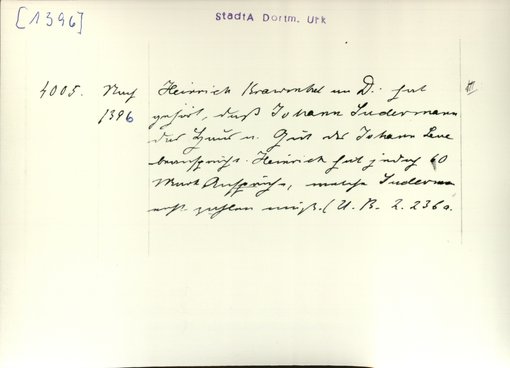 [1396]
StadtA Dortm. Urk
4005. Nach Heinrich Krawinkel in D. hat
1396 gehört, daß Johann Sudermann
das Haus u. Gut des Johann Leve
beansprucht. Heinrich hat jedoch 60
Mark Ansprüche, welche Suderma
erst zahlen muß. (U. B. 2. 236a.